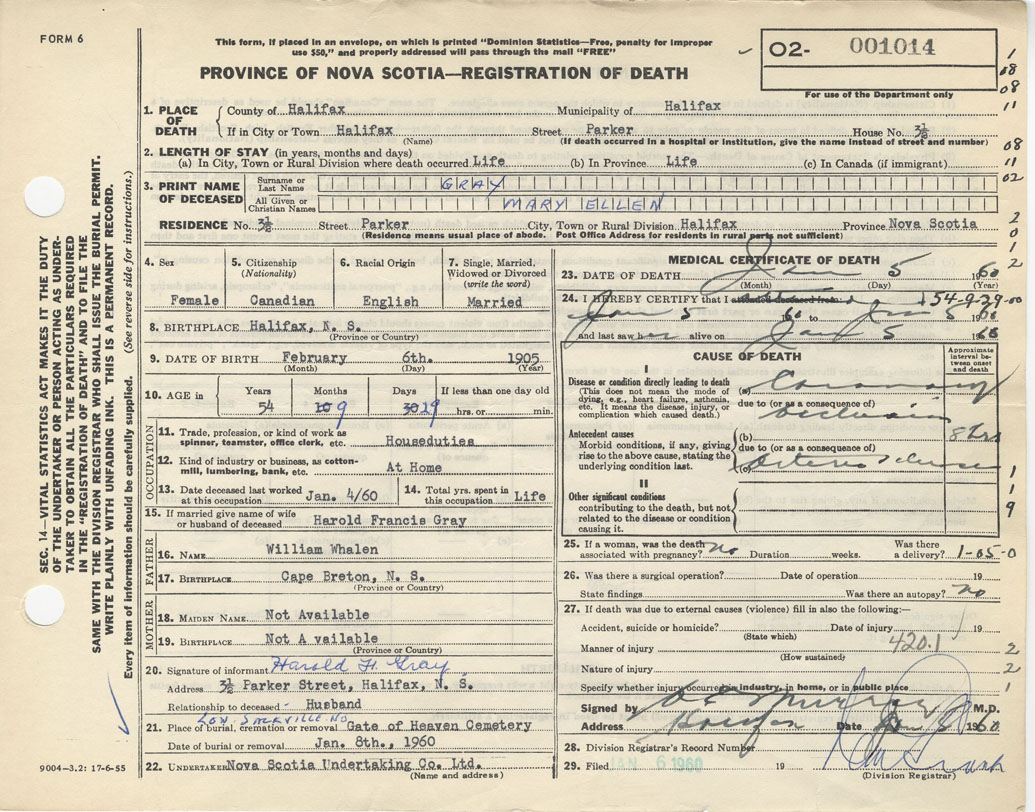 FORM 6
This form, if placed in an envelope, on which is printed "Dominion Statistics—Free, penalty for improper
use $50," and properly addressed will pass through the mail "FREE"
O2- 001014
For use of the Department only
PROVINCE OF NOVA SCOTIA—REGISTRATION OF DEATH
1. PLACE OF DEATH County of Halifax Municipality of Halifax
If in City or Town Halifax Street Parker House No. 3½
(Name) (If death occurred in a hospital or institution, give the name instead of street and number)
2. LENGTH OF STAY (in years, months and days)
(a) In City, Town or Rural Division where death occurred Life (b) In Province Life (c) In Canada (if immigrant)
3. PRINT NAME OF DECEASED Surname or Last Name GRAY
All Given or Christian Names MARY ELLEN
RESIDENCE No. 3½ Street Parker City, Town or Rural Division Halifax Province Nova Scotia
(Residence means usual place of abode. Post Office Address for residents in rural parts not sufficient)
4. Sex 5. Citizenship (Nationality) 6. Racial Origin 7. Single, Married, Widowed or Divorced (write the word)
Female Canadian English Married
8. BIRTHPLACE Halifax, N. S.
(Province or Country)
9. DATE OF BIRTH February 6th. 1905
(Month) (Day) (Year)
10. AGE in Years Months Days If less than one day old
54 10 9 30 29 hrs. or min.
OCCUPATION
11. Trade, profession, or kind of work as
spinner, teamster, office clerk, etc. Houseduties
12. Kind of industry or business, as cotton-
mill, lumbering, bank, etc. At Home
13. Date deceased last worked at this occupation Jan. 4/60 14. Total yrs. spent in this occupation Life
15. If married give name of wife
or husband of deceased Harold Francis Gray
FATHER
16. NAME William Whalen
17. BIRTHPLACE Cape Breton, N. S.
(Province or Country)
MOTHER
18. MAIDEN NAME Not Available
19. BIRTHPLACE Not A vailable
(Province or Country)
20. Signature of informant Harold F. Gray
Address 3½ Parker Street, Halifax, N. S.
Relationship to deceased Husband
LOW. SACKVILLE. NS
21. Place of burial, cremation or removal Gate of Heaven Cemetery
Date of burial or removal Jan. 8th., 1960
22. UNDERTAKER Nova Scotia Undertaking Co. Ltd.
(Name and address)
9004-3.2: 17-6-55
SEC. 14—VITAL STATISTICS ACT MAKES IT THE DUTY
OF THE UNDERTAKER OR PERSON ACTING AS UNDER-
TAKER TO OBTAIN ALL THE PARTICULARS REQUIRED
IN THE "REGISTRATION OF DEATH" AND TO FILE THE
SAME WITH THE DIVISION REGISTRAR WHO SHALL ISSUE THE BURIAL PERMIT.
WRITE PLAINLY WITH UNFADING INK. THIS IS A PERMANENT RECORD.
Every item of information should be carefully supplied. (See reverse side for instructions.)
MEDICAL CERTIFICATE OF DEATH
23. DATE OF DEATH Jan 5 1960
(Month) (Day)
24. I HEREBY CERTIFY that I attended deceased from 54-9-29-00
Jan 5 60 to Jan 5 1960
and last saw her alive on Jan 5 1960
CAUSE OF DEATH
Approximate interval between onset and death
I
Disease or condition directly leading to death
(This does not mean the mode of
dying, e.g., heart failure, asthenia,
etc. It means the disease, injury, or
complication which caused death.)
(a) Coronary
due to (or as a consequence of)
occlusion
8 hrs
Antecedent causes
Morbid conditions, if any, giving
rise to the above cause, stating the
underlying condition last.
(b)
due to (or as a consequence of)
(c)
II
Other significant conditions
contributing to the death, but not
related to the disease or condition
causing it.
25. If a woman, was the death
associated with pregnancy? no Duration weeks. Was there a delivery? 1-05-0
26. Was there a surgical operation? Date of operation 19
State findings Was there an autopsy? no
27. If death was due to external causes (violence) fill in also the following:—
Accident, suicide or homicide? Date of injury 19
(State which)
Manner of injury 420.1
(How sustained)
Nature of injury
Specify whether injury occurred in industry, in home, or in public place
Signed by M.D.
Address Date 1960
28. Division Registrar's Record Number
29. Filed JAN 6 1960 19
(Division Registrar)
1
08
08
11
08
11
02
2
0
1
2
1
1
9
2
2
1